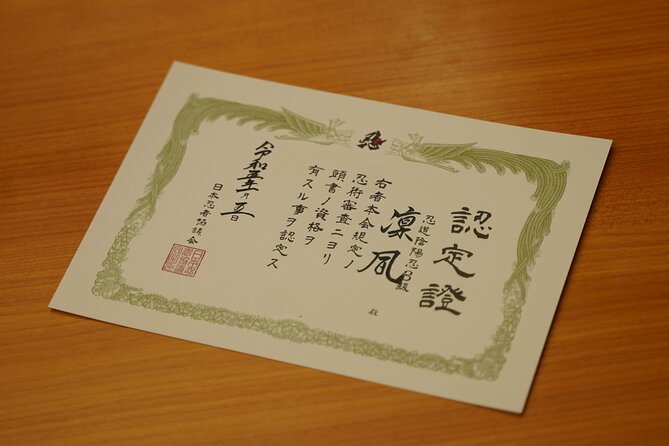 忍
認定證
忍道陰陽忍B級
凜風 殿
右者本会規定ノ
忍術審査ニヨリ
頭書ノ資格ヲ
有スル事ヲ認定ス
令和五年月五日
日本忍者協議会